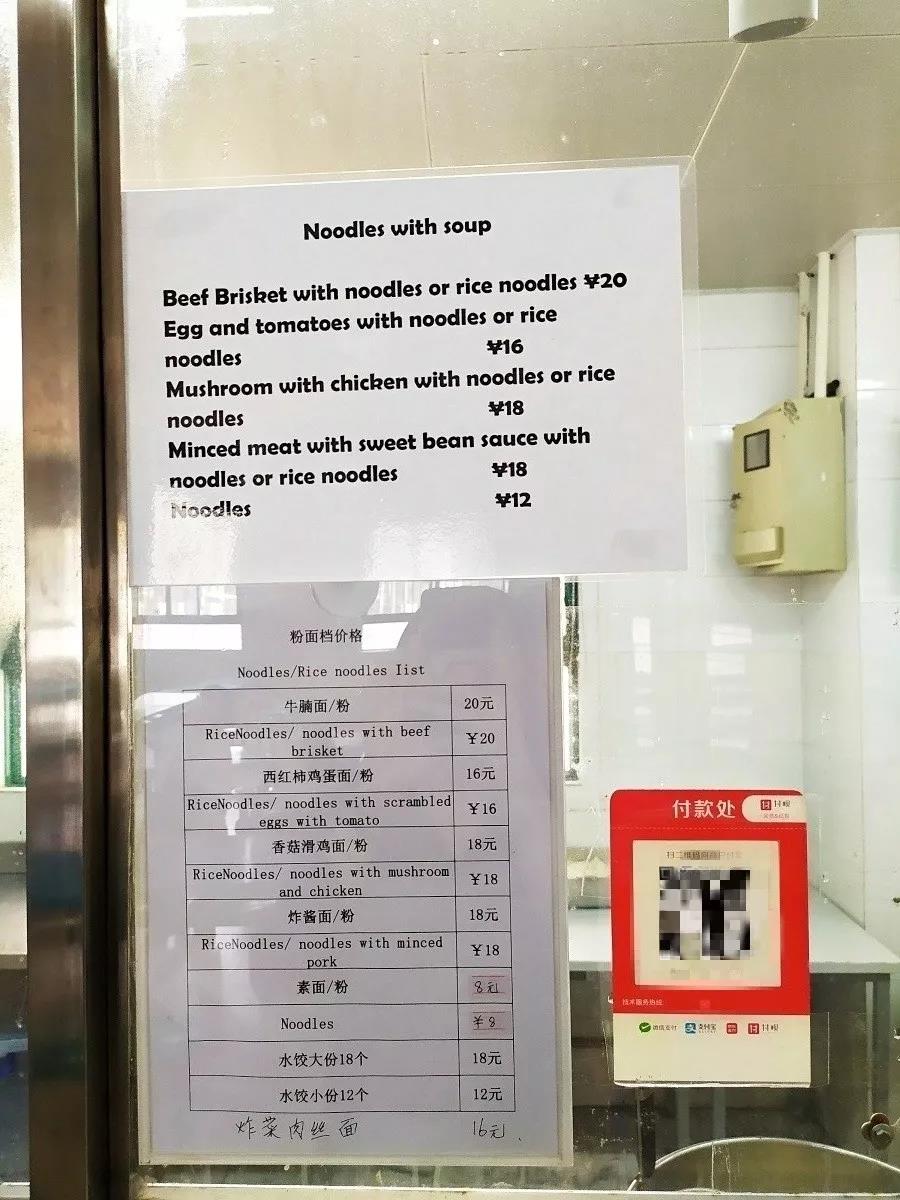 Noodles with soup
Beef Brisket with noodles or rice noodles ¥20
Egg and tomatoes with noodles or rice
noodles ¥16
Mushroom with chicken with noodles or rice
noodles ¥18
Minced meat with sweet bean sauce with
noodles or rice noodles ¥18
Noodles ¥12
粉面档价格
Noodles/Rice noodles Iist
牛腩面/粉 20元
RiceNoodles/ noodles with beef
brisket ￥20
西红柿鸡蛋面/粉 16元
RiceNoodles/ noodles with scrambled
eggs with tomato ￥16
香菇滑鸡面/粉 18元
RiceNoodles/ noodles with mushroom
and chicken ￥18
炸酱面/粉 18元
RiceNoodles/ noodles with minced
pork ￥18
素面/粉 8元
Noodles ￥8
水饺大份18个 18元
水饺小份12个 12元
炸菜肉丝面 16元
付款处
付呗
扫二维码向商户付款
技术服务热线
微信支付 支付宝 付呗